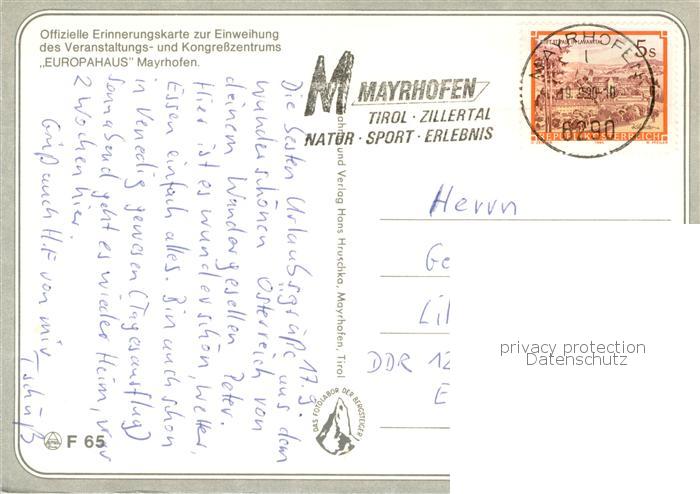 Offizielle Erinnerungskarte zur Einweihung
des Veranstaltungs- und Kongreßzentrums
„EUROPAHAUS" Mayrhofen.
M MAYRHOFEN
TIROL · ZILLERTAL
NATUR · SPORT · ERLEBNIS
MAYRHOFEN
6290
5 S
REPUBLIK ÖSTERREICH
17.9.
Die besten Urlaubsgrüße aus dem
wunderschönen Österreich von
deinem Wandergesellen Peter.
Hier ist es wunderschön, Wetter,
Essen einfach alles. Bin auch schon
in Venedig gewesen (Tagesausflug)
Sonnabend geht es wieder Heim, war
2 Wochen hier.
Grüß auch H.E von mir
Tschüß
und Verlag Hans Hruschka, Mayrhofen, Tirol
DAS FOTOLABOR DER BERGSTEIGER
F 65
Herrn
Ge
Lil
DDR 12
E
privacy protection
Datenschutz